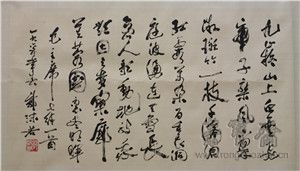 九嶷山上白雲飛
帝子乘風下翠
微斑竹一枝千滴淚
紅霞萬朵百重衣洞
庭波涌連天雪長
島人歌動地詩我
欲因之夢寥廓
芙蓉國裏盡朝暉
毛主席七律一首
郭沫若